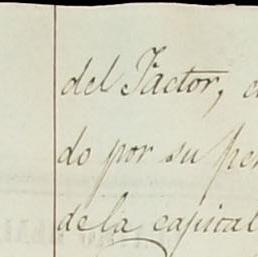 del Factor,
do por su per
de la capital